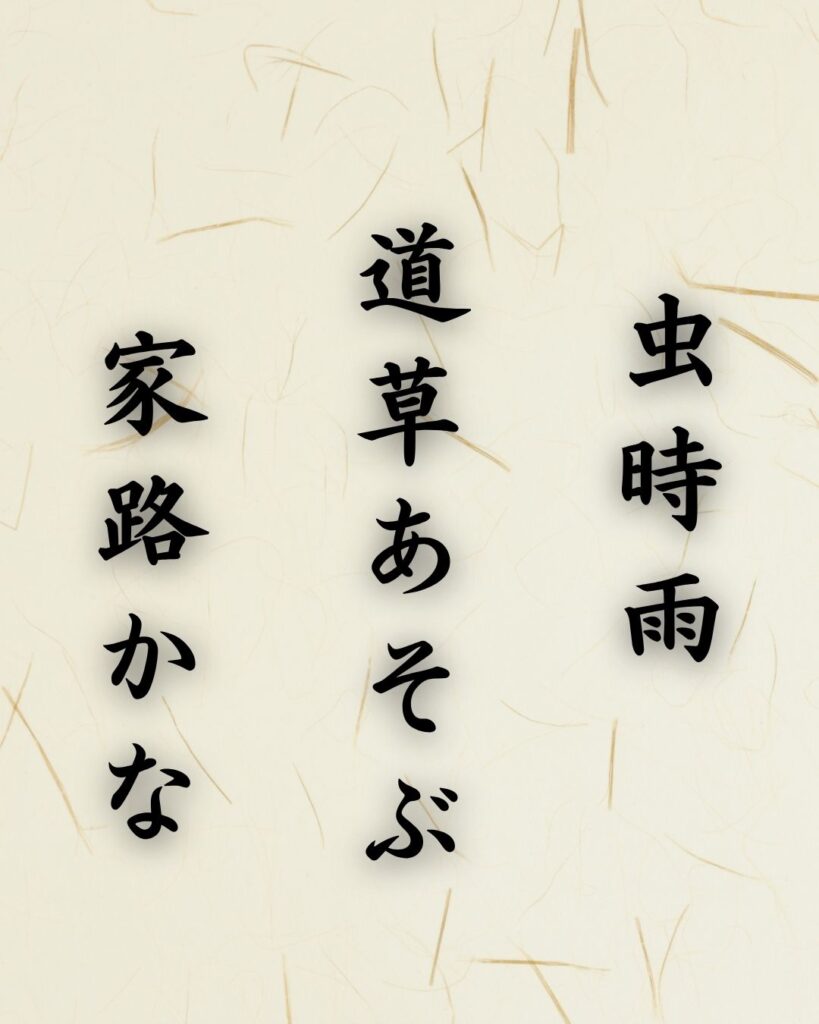 虫時雨
道草あそぶ
家路かな